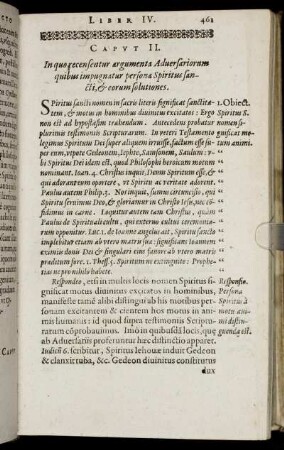 LIBER IV. 461
CAPVT II.
In quo recensentur argumenta Adversariorum
quibus impugnatur persona Spiritus san-
cti, & eorum solutiones.
Spiritus sancti nomen in sacris literis significat sanctita-
tem, & metus in hominibus divinitus excitatos : Ergo
non est ad hypostasin trahendum. Antecedens probatur
plurimis testimoniis Scripturarum. In veteri Testamento
legimus Spiritum Dei super aliquem irruisse, factum esse su-
per eum, nempe Gedeonem, Iephte, Samsonem, Saulem :
bi Spiritus Dei idem est, quod Philosophi heroicum motum
nominant. Ioan. 4. Christus inquit, Deum Spiritum esse, &
qui adorant eum oportere, vt Spiritu ac veritate adorent.
Paulus autem Philip. 3. Nos inquit, sumus circuncisio, qui
Spiritu servimus Deo, & gloriamur in Christo Iesu, nec con-
fidimus in carne. Loquitur autem tam Christus, quàm
Paulus de Spirituali cultu, qui externo cultui ceremonia-
rum opponitur. Luc. 1. de Ioanne angelus ait, Spiritu sancto
implebitur etiam ab vtero matris suæ : significans Ioannem
eximio dono Dei & singulari eius favore ab vtero matris
præditum fore. 1. Thess. 5. Spiritum ne extinguite : Prophe-
tias ne pro nihilo habete.
Respondeo, etsi in multis locis nomen Spiritus si-
gnificat motus divinitus excitatos in hominibus,
manifestè tamē alibi distingui ab his motibus per-
sonam excitantem & cientem hos motus in ani-
mis humanis : id quod supra testimoniis Scriptu-
rarum cōprobauimus. Imò in quibusdā locis, quę
ab Adversariis proferuntur hæc distinctio apparet.
Iudicū 6. scribitur, Spiritus Iehouæ induit Gedeon
& clanxit tuba, &c. Gedeon divinitus constitutus
dux
1. Obiect.
Spiritus
nomen si-
gnificat mo-
tum animi.
Responsio.
Persona
Spiritus à
motu ani-
mi distin-
guenda est.